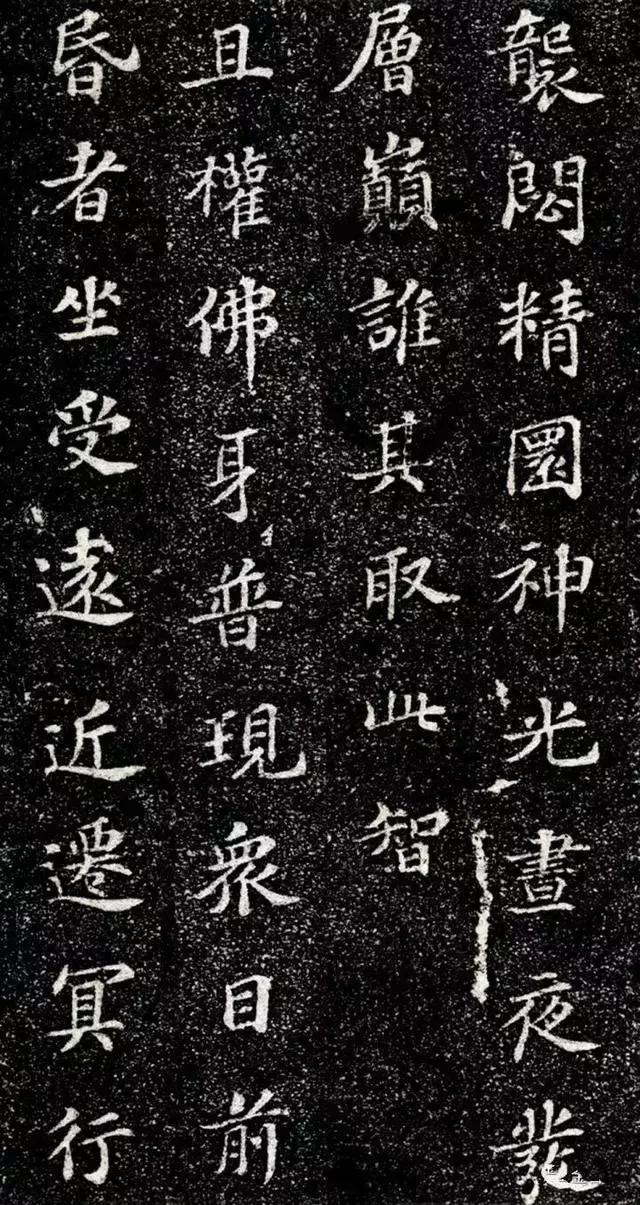 襲閟精圜神光晝夜發
層巔誰其取此智
且權佛身普現衆目前
昏者坐受遠近遷冥行